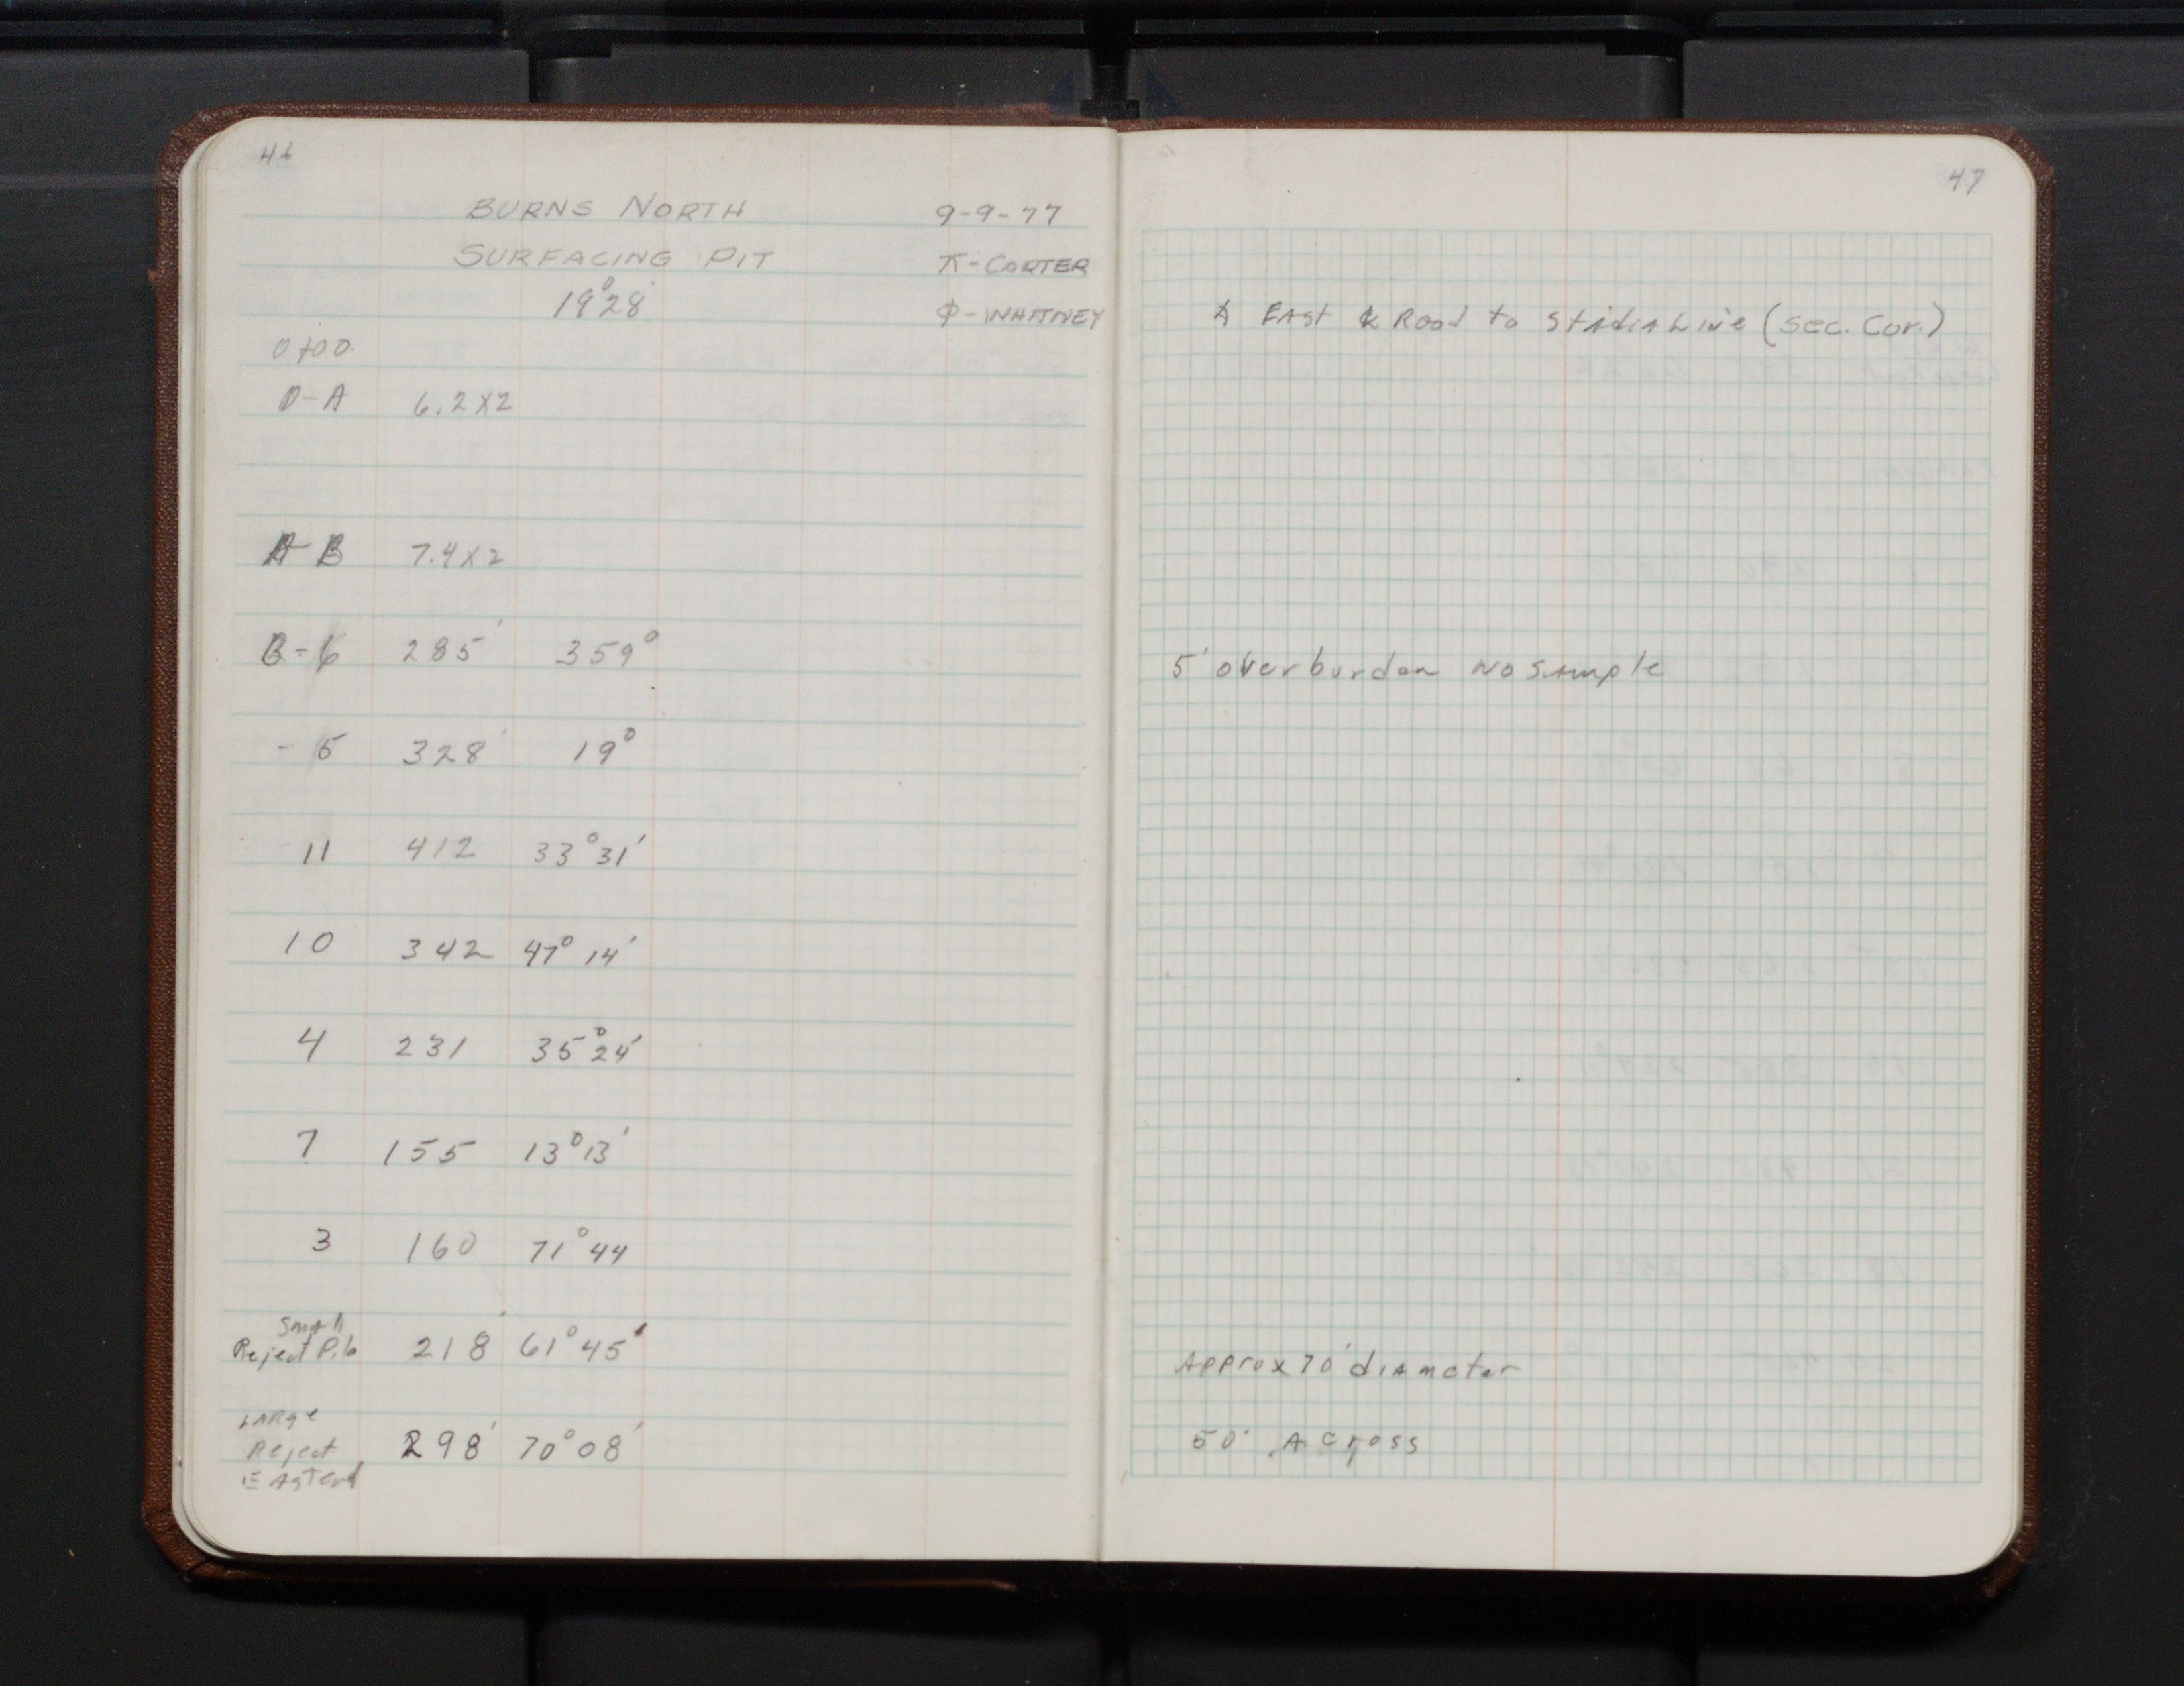 46
BURNS NORTH 9-9-77
SURFACING PIT ⊼-CORTER
19°28' Φ-WHITNEY
0+00
0-A 6.2X2
A-B 7.4X2
B-6 285' 359°
- 5 328' 19°
11 412 33°31'
10 342 47°14'
4 231 35°24'
7 155 13°13'
3 160 71°44
Small
Reject Pile 218' 61°45'
LARge
Reject 298' 70°08'
EAstend
47
∡ EAst ℄ Road to StadiA Line (Sec. Cor.)
5' overburden No Sample
Approx 70' diameter
50' Across